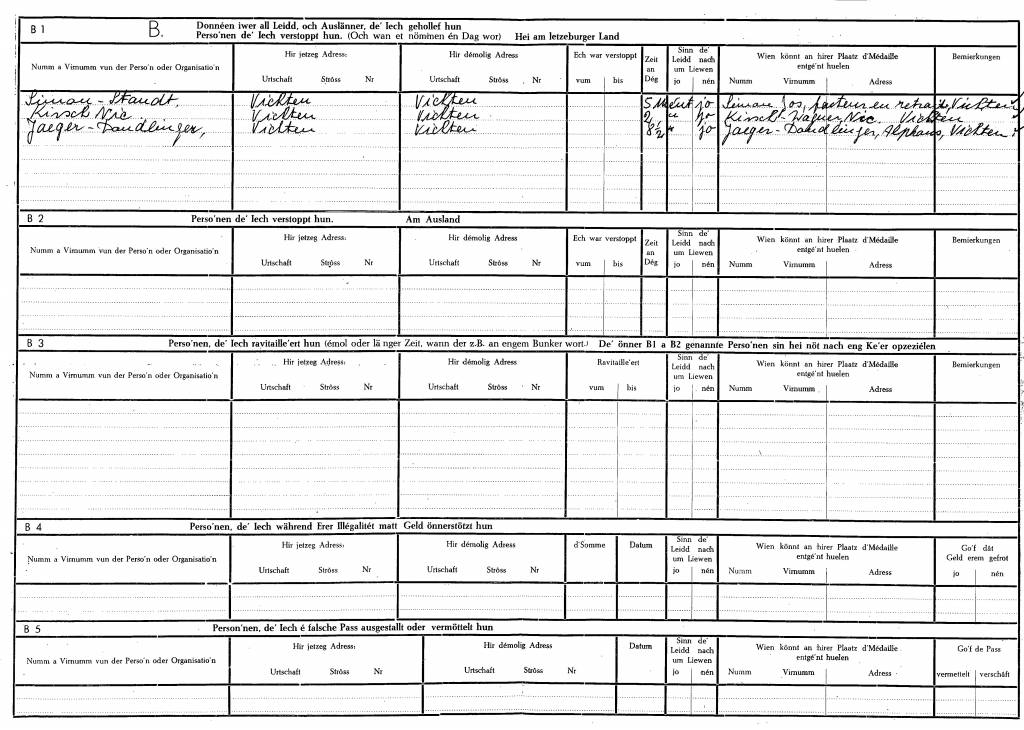 B 1 B. Donnéen iwer all Leidd, och Auslänner, de' Iech gehollef hun
Perso'nen de' Iech verstoppt hun. (Och wan et nömmen én Dag wor) Hei am letzeburger Land
Numm a Virnumm vun der Perso'n oder Organisatio'n Hir jetzeg Adress: Hir démolig Adress: Ech war verstoppt Zeit an Dég Sinn de' Leidd nach um Liewen Wien könnt an hirer Plaatz d'Médaille entgé'nt huelen Bemierkungen
Urtschaft Ströss Nr Urtschaft Ströss Nr vum bis jo nén Numm Virnumm Adress
Simon - Staudt, Vichten Vichten 5 jo Simon Jos, facteur en retraite, Vichten
Kirsch Nic. Vichten Vichten 2 " jo Kirsch-Wagner, Nic. Vichten
Jaeger - Daudlinger, Vichten Vichten 8½ " jo Jaeger - Daudlinger, Alphons, Vichten
B 2 Perso'nen de' Iech verstoppt hun. Am Ausland
Numm a Virnumm vun der Perso'n oder Organisatio'n Hir jetzeg Adress: Hir démolig Adress Ech war verstoppt Zeit an Dég Sinn de' Leidd nach um Liewen Wien könnt an hirer Plaatz d'Médaille entgé'nt huelen Bemierkungen
Urtschaft Ströss Nr Urtschaft Ströss Nr vum bis jo nén Numm Virnumm Adress
B 3 Perso'nen, de' Iech ravitaille'ert hun (émol oder länger Zeit, wann der z.B. an engem Bunker wort.) De' önner B1 a B2 genannte Perso'nen sin hei nöt nach eng Ke'er opzezielen
Numm a Virnumm vun der Perso'n oder Organisatio'n Hir jetzeg Adress: Hir démolig Adress Ravitaille'ert Sinn de' Leidd nach um Liewen Wien könnt an hirer Plaatz d'Médaille entgé'nt huelen Bemierkungen
Urtschaft Ströss Nr Urtschaft Ströss Nr vum bis jo nén Numm Virnumm Adress
B 4 Perso'nen, de' Iech während Erer Illégalitét matt Geld önnerstötzt hun
Numm a Virnumm vun der Perso'n oder Organisatio'n Hir jetzeg Adress: Hir démolig Adress d'Somme Datum Sinn de' Leidd nach um Liewen Wien könnt an hirer Plaatz d'Médaille entgé'nt huelen Go'f dât Geld erem gefrot
Urtschaft Ströss Nr Urtschaft Ströss Nr jo nén Numm Virnumm Adress jo nén
B 5 Person'nen, de' Iech é falsche Pass ausgestallt oder vermöttelt hun
Numm a Virnumm vun der Perso'n oder Organisatio'n Hir jetzeg Adress: Hir démolig Adress Datum Sinn de' Leidd nach um Liewen Wien könnt an hirer Plaatz d'Médaille entgé'nt huelen Go'f de Pass
Urtschaft Ströss Nr Urtschaft Ströss Nr jo nén Numm Virnumm Adress vermettelt verschâft